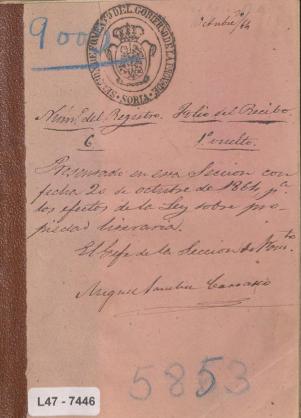 Octubre 20/64
9000
SECCION DE FOMENTO DEL GOBIERNO DE LA PROVINCIA
SORIA
Núm.º del Registro. Folio del Recibo.
6 1.º vuelto.
Presentado en esta Seccion con
fecha 20 de octubre de 1864 p.ª
los efectos de la Ley sobre pro-
piedad literaria.
El Gefe de la Seccion de Fom.to
Miguel Carrasco
L47 - 7446
5853